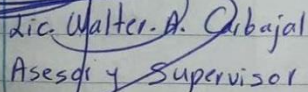 Lic. Walter. A. Cubajal
Asesor y Supervisor